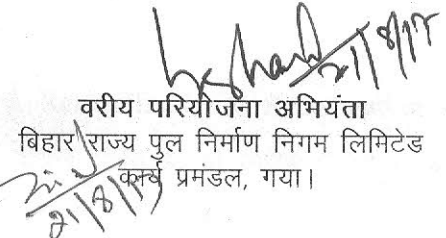 21/8/17
वरीय परियोजना अभियंता
बिहार राज्य पुल निर्माण निगम लिमिटेड
कार्य प्रमंडल, गया।
21/8/17